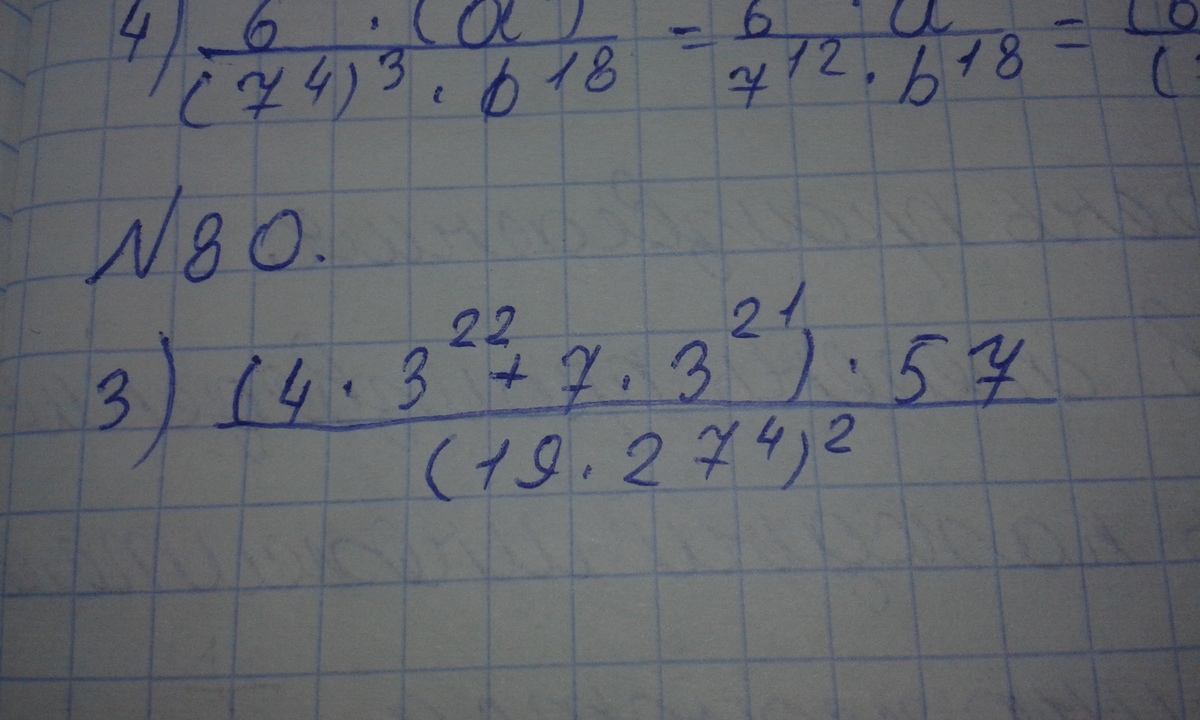 4) 6 · (a ) / (7^4)^3 · b^18 = 6 · a / 7^12 · b^18 =
N 80.
3) (4 · 3^22 + 7 · 3^21) · 57 / (19 · 27^4)^2